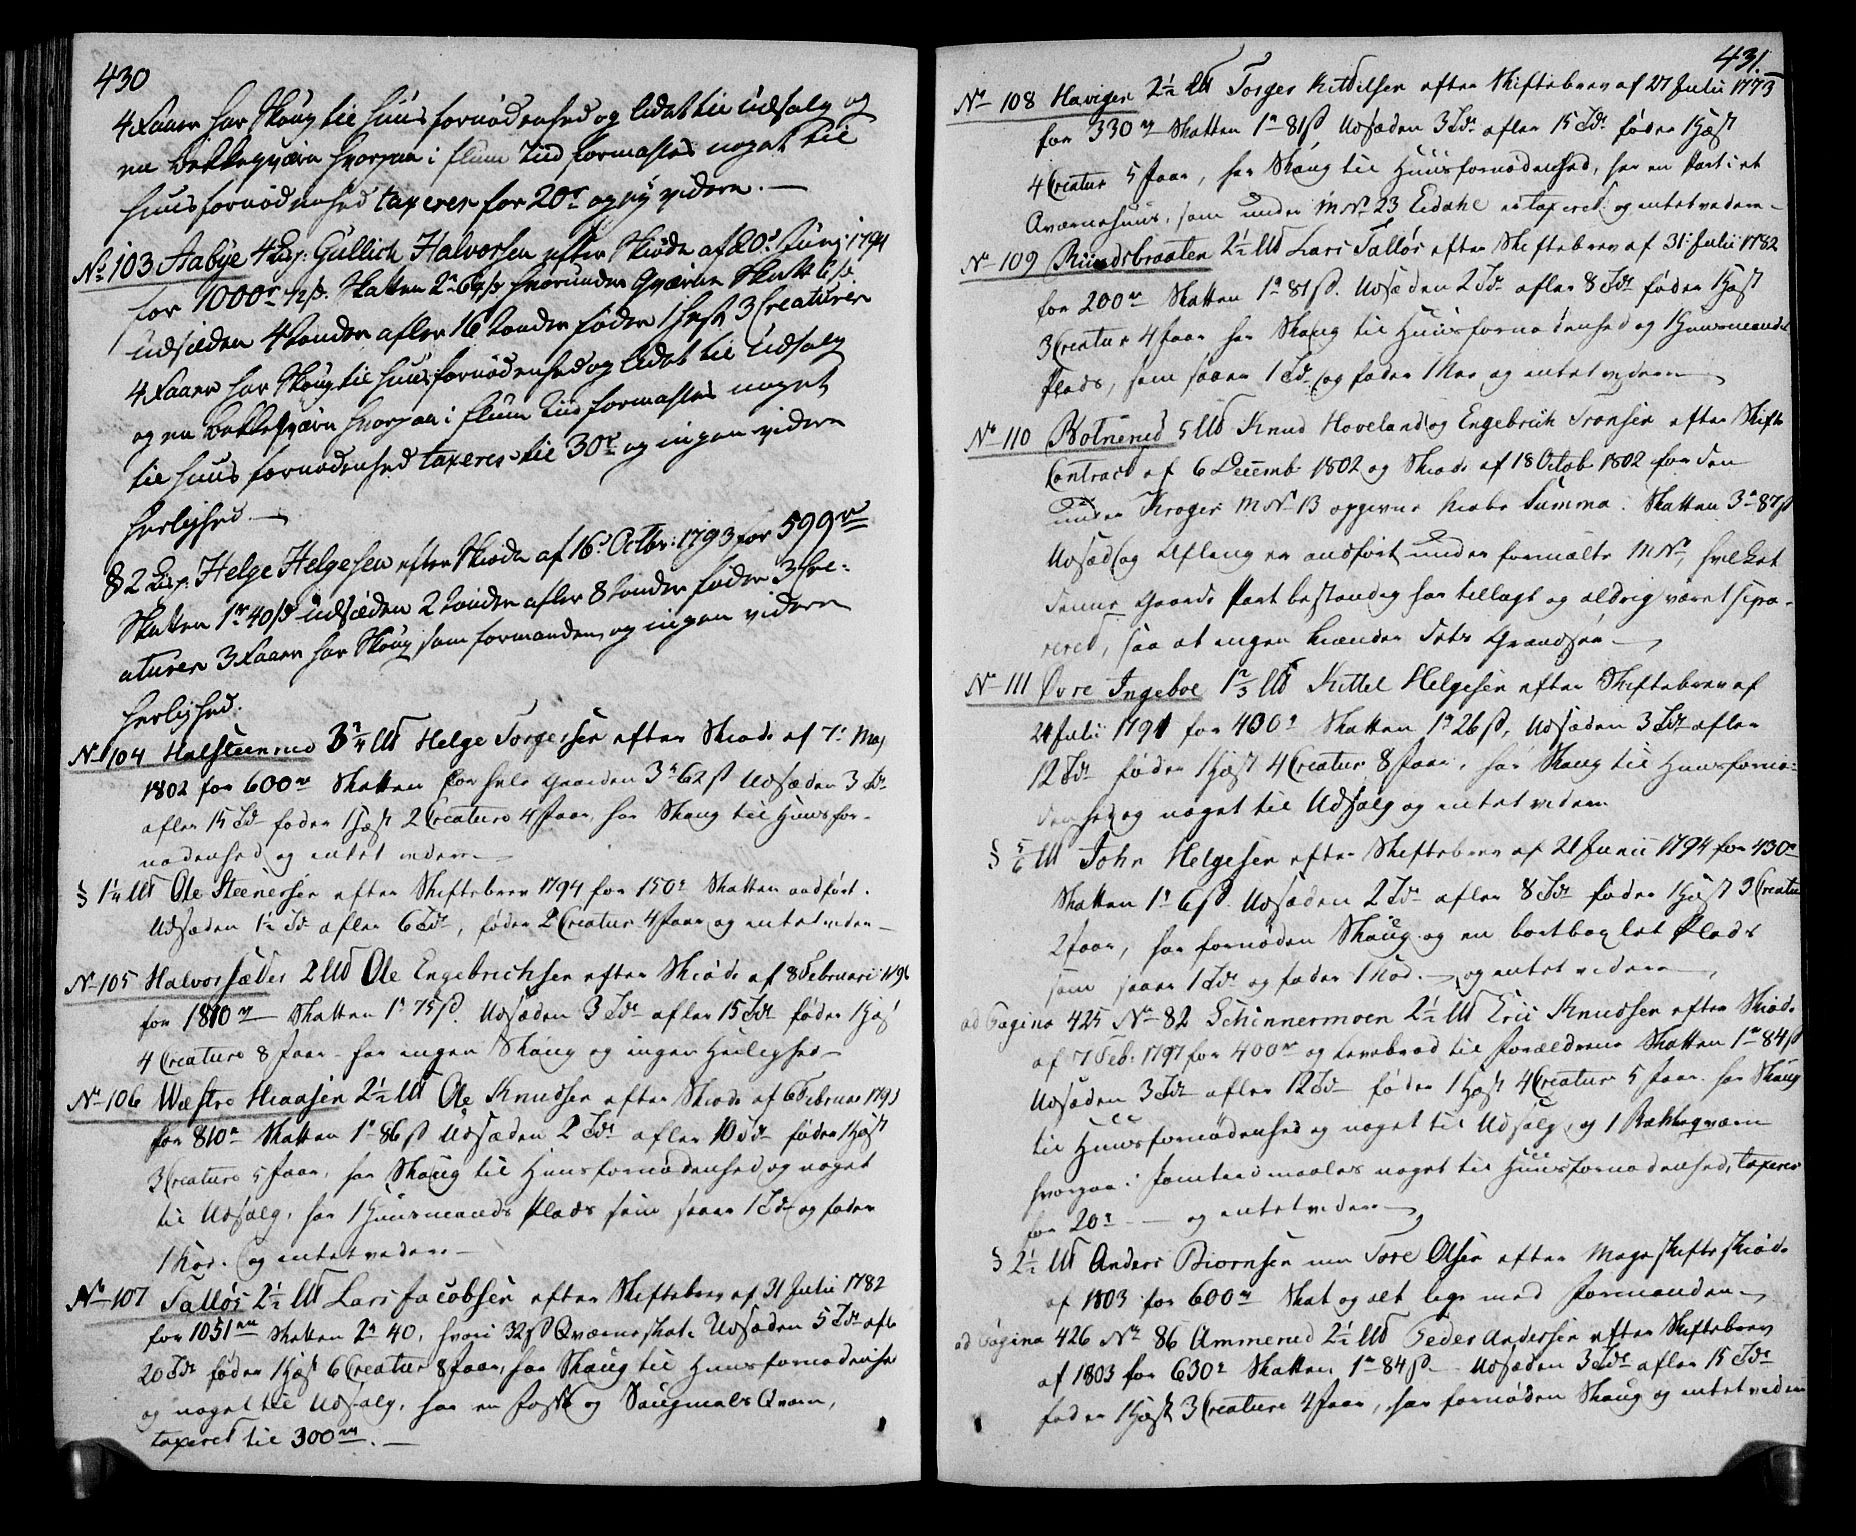 430
4 Faarer har Skoug til Huusfornødenhed og lidet til Udsalg og
en Bekkeqværn hvorpaa i flum Tiid formales noget til
Huusfornødenhed taxeres for 20r og ey videre. —
No 103 Aabye 4 Lisp: Gullich Halvorsen efter Skiøde af 20de Junj 1794
for 1000r Skatten 2r 64s hvorunder Qværne Skatt
Udsæden 4 Tønder afler 16 Tønder føder 1 Hest 3 Creaturer
4 Faarer har Skoug til Huusfornødenhed og lidet til Udsalg
og en Bekkeqværn hvorpaa i flum Tiid formales noget
til Huusfornødenhed taxeres til 30r og ingen videre
herlighed. —
§ 2 Lisp. Helge Helgesen efter Skiøde af 16de Octbr: 1793 for 599r
Skatten 1r 40s Udsæden 2 Tønder afler 8 Tønder føder 3 Cre-
aturer 3 Faarer har Skoug som formanden, og ingen videre
herlighed.
No 104 Halsteenrud Helge Torgersen efter Skiøde af 7de Maj
1802 for 600r Skatten for hele Gaarden 3r 62s Udsæden 3 Tdr
afler 15 Tdr føder 1 Hæst 2 Creature 4 Faar, har Skaug til Huusfor-
nødenhed og intet videre —
§ 1¼ Ole Steenersen efter Skiftebrev 1794 for 150r Skatten anført.
Udsæden 1½ Tdr afler 6 Tdr, føder 2 Creatur 4 Faar og intet videre —
No 105 Halvorsædes 2 Ole Engebrichsen efter Skiøde af 8 Februari
for 1810r — Skatten 1r 75s. Udsæden 3 Tdr afler 15 Tdr føder 1 Hæst
4 Creature 8 Faar — har ingen Skaug og ingen Herlighed —
No 106 Wæstre Haasen 2½ Ole Knudsen efter Skiøde af 6 Februar
for 810r Skatten 1r 86s Udsæden 2 Tdr afler 10 Tdr føder 1 Hæst
3 Creature 5 Faar, har Skaug til Huusfornødenhed og noget
til Udsalg, har 1 Huusmands Plads som saaer 1 Td og føder
1 Koe. og intet videre —
No 107 Talløs 2½ Lars Jacobsen efter Skiftebrev af 31 Julii 1782
for 1051r Skatten 2r 40, hvori 32s Qværneskat. Udsæden 5 Tdr afler
20 Tdr føder 1 Hæst 6 Creatur 8 Faar, har Skaug til Huusfornødenhed
og noget til Udsalg, har en Fosse og Saugmels Qværn,
taxeret til 300r. —
431.
No 108 Havigen 2½ Torger Kittilsen efter Skiftebrev af 27 Julii 1773
for 330r Skatten 1r 81s Udsæden 3 Tdr afler 15 Tdr føder 1 Hæst
4 Creatur 5 Faar, har Skaug til Huusfornødenhed, har en Part i et
Qværnehuus, som under MNo 23 Eidahl er taxeret og intet videre —
No 109 Rundsbraaten 2½ Lars Talløs efter Skiftebrev af 31 Julii 1782
for 200r Skatten 1r 81s. Udsæden 2 Tdr afler 8 Tdr føder 1 Hæst
3 Creatur 4 Faar har Skaug til Huusfornødenhed og 1 Huusmands
Plads, som saaer 1 Td og føder 1 Koe og intet videre —
No 110 Botnerud 5 Knud Hoveland og Engebrich Tronsen efter Skifte
Contract af 6 Decemb 1802 og Skiøde af 18 Octob 1802 for den
under Kroger MNo 13 opgivne Kiøbe Summa. Skatten 3r 87s
Udsæd og Afleng er anført under formælte MNo, hvilket
denne Gaards Part bestandig har tillagt og aldrig været sepa-
reret, saa at ingen kiender dets Grændser —
No 111 Øvre Ingeboe Kittel Helgesen efter Skiftebrev af
21 Julii 1791 for 430r Skatten 1r 26s, Udsæden 3 Tdr afler
12 Tdr føder 1 Hæst 4 Creatur 8 Faar, har Skaug til Huusfornø-
denhed og noget til Udsalg og intet videre
§ 5/6 John Helgesen efter Skiftebrev af 21 Junii 1794 for 430r
Skatten 1r 6s. Udsæden 2 Tdr afler 8 Tdr føder 1 Hæst 3 Creatur
2 Faar, har fornøden Skaug og en bortbøxlet Plads
som saaer 1 Td og føder 1 Koe. — og intet videre —
ad Pagina 425 No 82 Schinnermoen 2½ Eric Knudsen efter Skiøde
af 7 Feb: 1797 for 400r og Levebrød til Forældrene Skatten 1r 84s
Udsæden 3 Tdr afler 12 Tdr føder 1 Hæst 4 Creatur 5 Faar. har Skaug
til Huusfornødenhed og noget til Udsalg, og 1 Bækkeqværn
hvorpaa i flomtiid maales noget til Huusfornødenhed, taxeres
for 20r — og intet videre —
§ 2½ Anders Biørnsen nu Tore Olsen efter Mageskifteskiøde
af 1803 for 600r Skat og alt lige med Formanden —
ad Pagina 426 No 86 Ammerud 2½ Peder Andersen efter Skiftebrev
af 1803 for 630r Skatten 1r 84s — Udsæden 3 Tdr afler 15 Tdr
føder 1 Hæst 3 Creature 4 Faar, har fornøden Skaug og intet videre